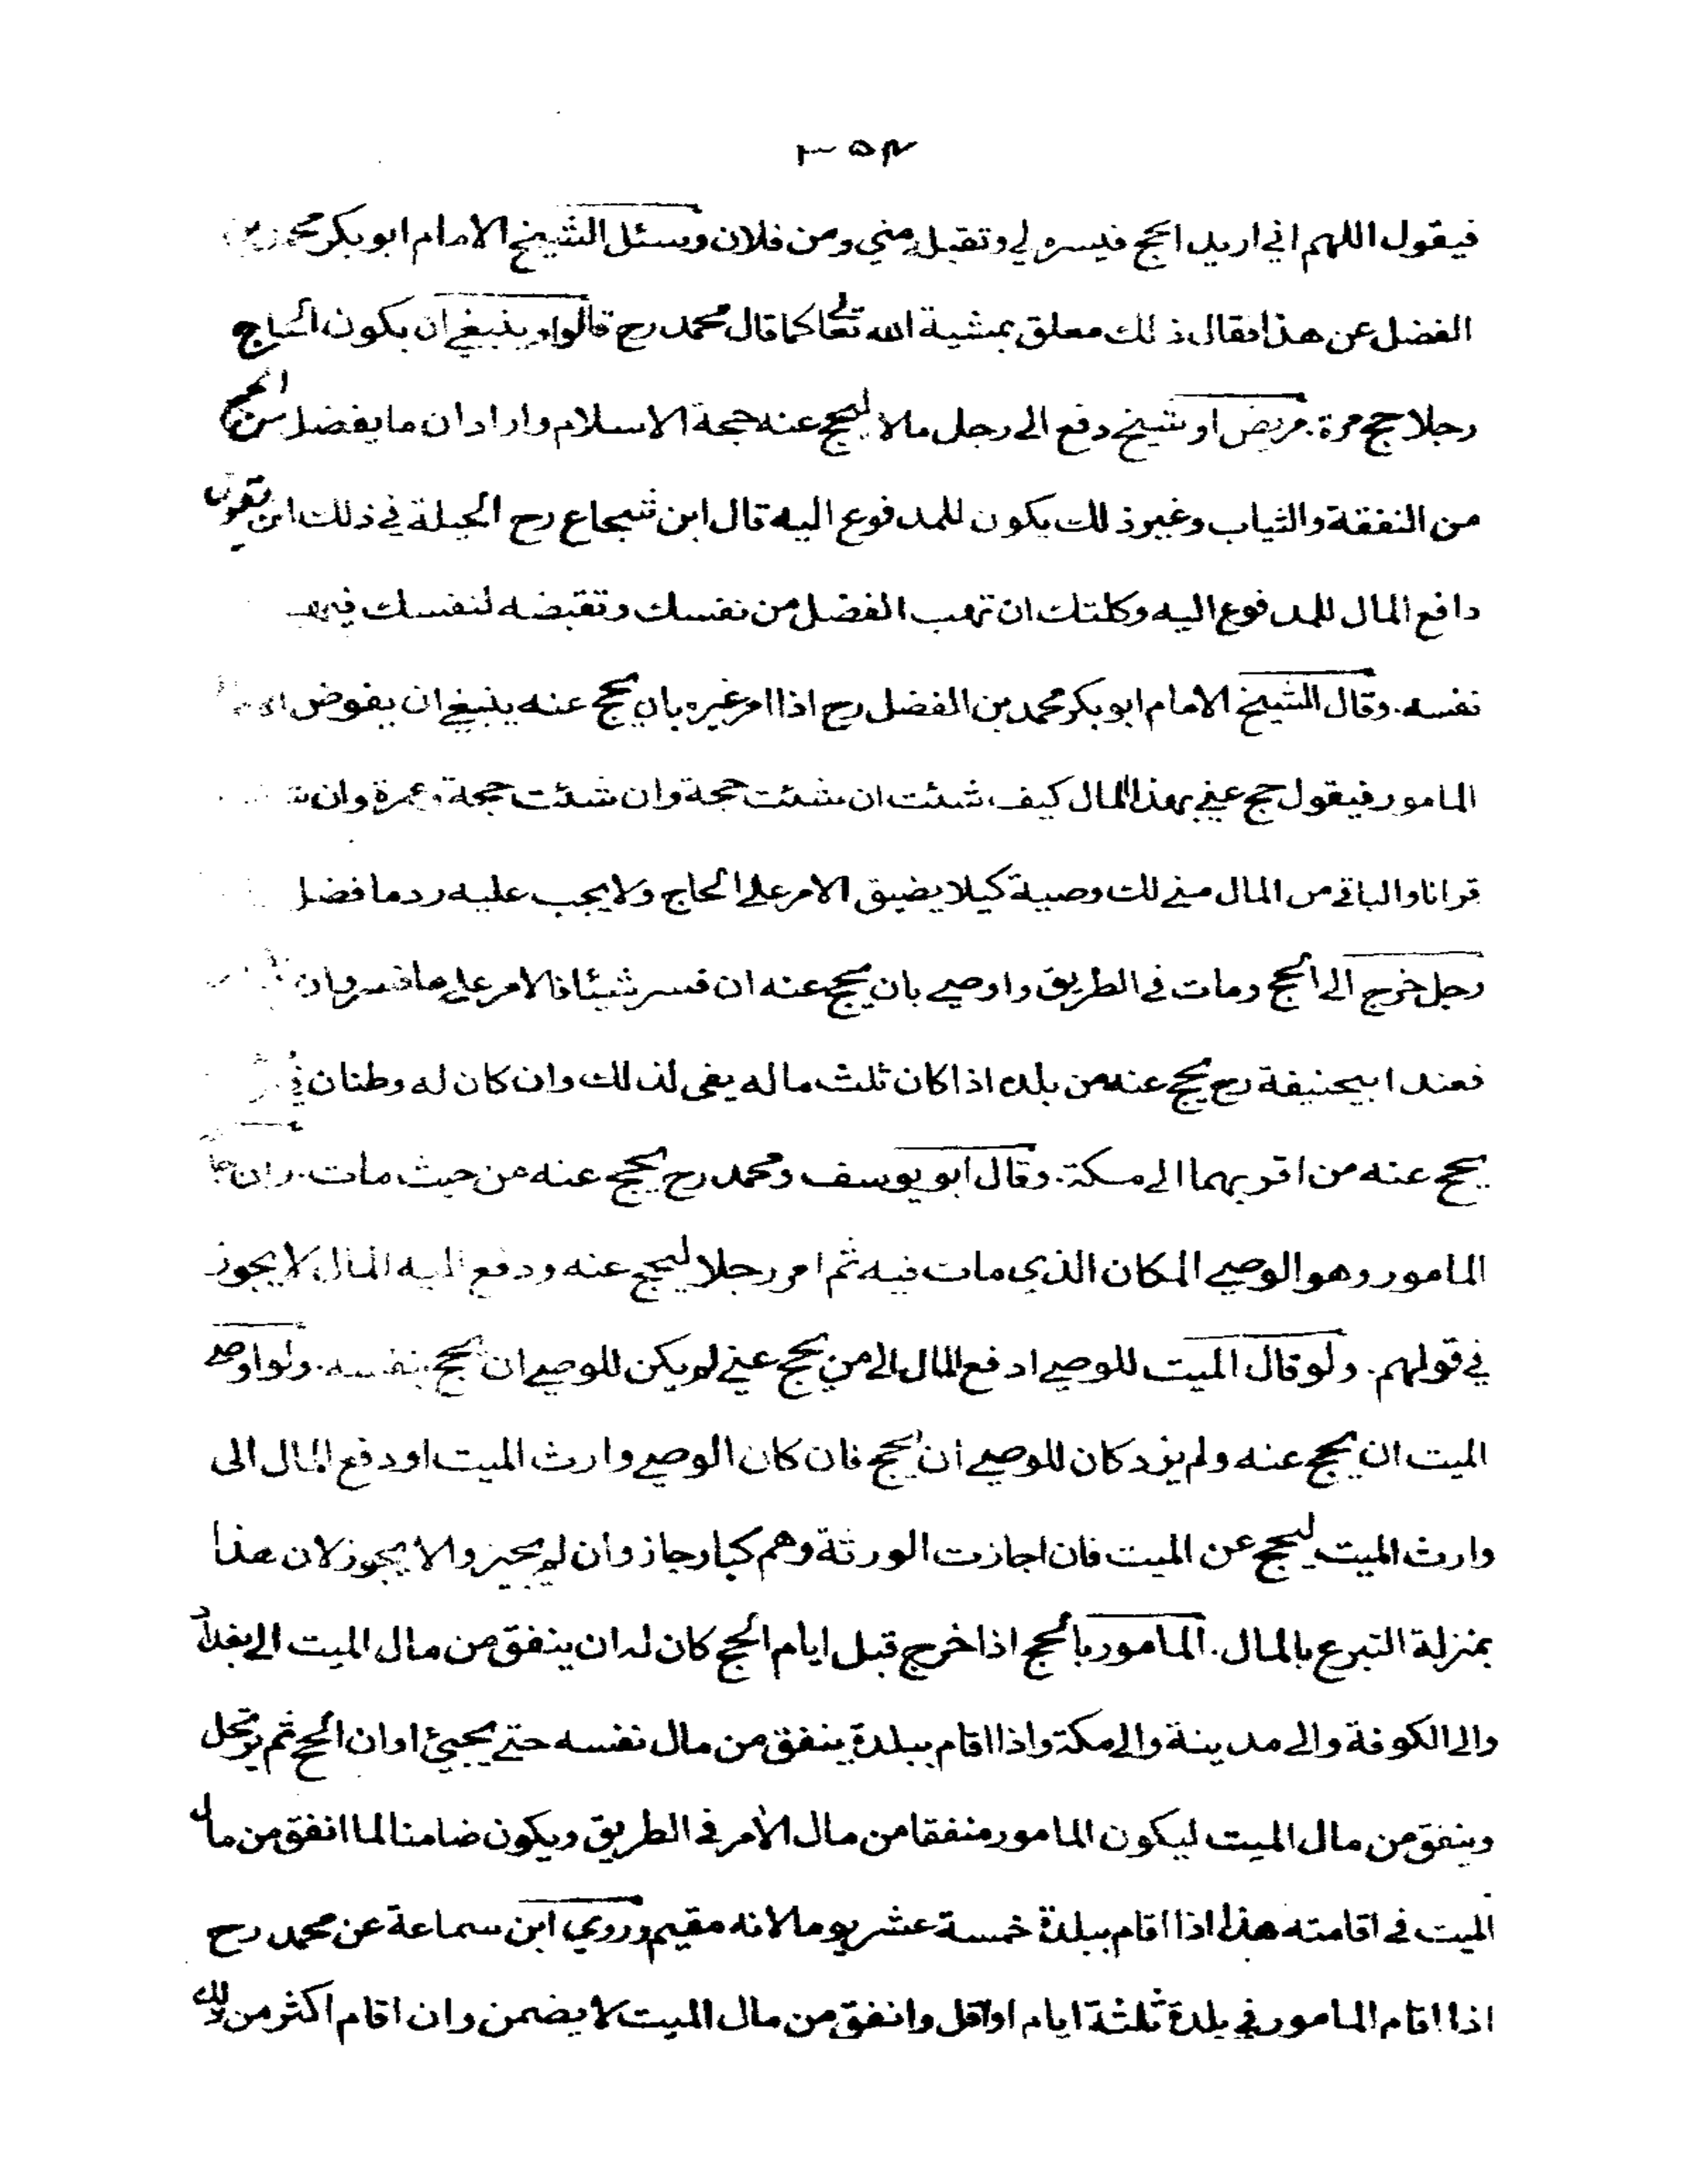 ٣٥٢
فيقول اللهم اني اريد الحج فيسره لي وتقبله مني ومن فلان وسئل الشيخ الامام ابو بكر محمد بن
الفضل عن هذا فقال ذلك معلق بمشية الله تعالى كما قال محمد رح قالوا وينبغي ان يكون الحاج
رجلا حج مرة. مريض او شيخ دفع الى رجل مالا ليحج عنه حجة الاسلام واراد ان ما يفضل من الحج
من النفقة والثياب وغير ذلك يكون للمدفوع اليه قال ابن شجاع رح الحيلة في ذلك ان يقول
دافع المال للمدفوع اليه وكلتك ان تهب الفضل من نفسك وتقبضه لنفسك
نفسه. وقال الشيخ الامام ابو بكر محمد بن الفضل رح اذا امر غيره بان يحج عنه ينبغي ان يفوض
المامور فيقول حج عني بهذا المال كيف شئت ان شئت حجة وان شئت حجة وعمرة وان
قرانا والباقي من المال مني لك وصية كيلا يضيق الامر على الحاج ولا يجب عليه رد ما فضل
رجل خرج الى الحج ومات في الطريق واوصى بان يحج عنه ان فسر شيئا فالامر على ما فسر وان
فعند ابيحنيفة رح يحج عنه من بلده اذا كان ثلث ماله يفي لذلك وان كان له وطنان
يحج عنه من اقربهما الى مكة. وقال ابو يوسف ومحمد رح يحج عنه من حيث مات. وان
المامور وهو الوصي المكان الذي مات فيه ثم امر رجلا ليحج عنه ودفع اليه المال لا يجوز
في قولهم. ولو قال الميت للوصي ادفع المال الى من يحج عني لم يكن للوصي ان يحج بنفسه. ولو اوصى
الميت ان يحج عنه ولم يزد كان للوصي ان يحج فان كان الوصي وارث الميت او دفع المال الى
وارث الميت ليحج عن الميت فان اجازت الورثة وهم كبار جاز وان لم يجيزوا لا يجوز لان هذا
بمنزلة التبرع بالمال. المامور بالحج اذا خرج قبل ايام الحج كان له ان ينفق من مال الميت الى بغداد
والى الكوفة والى مدينة والى مكة واذا اقام ببلدة ينفق من مال نفسه حتى يجيئ اوان الحج ثم يرتحل
وينفق من مال الميت ليكون المامور منفقا من مال الآمر في الطريق ويكون ضامنا لما انفق من مال
الميت في اقامته هذا اذا اقام ببلدة خمسة عشر يوما لانه مقيم وروي ابن سماعة عن محمد رح
اذا اقام المامور في بلدة ثلثة ايام او اقل وانفق من مال الميت لا يضمن وان اقام اكثر من ذلك